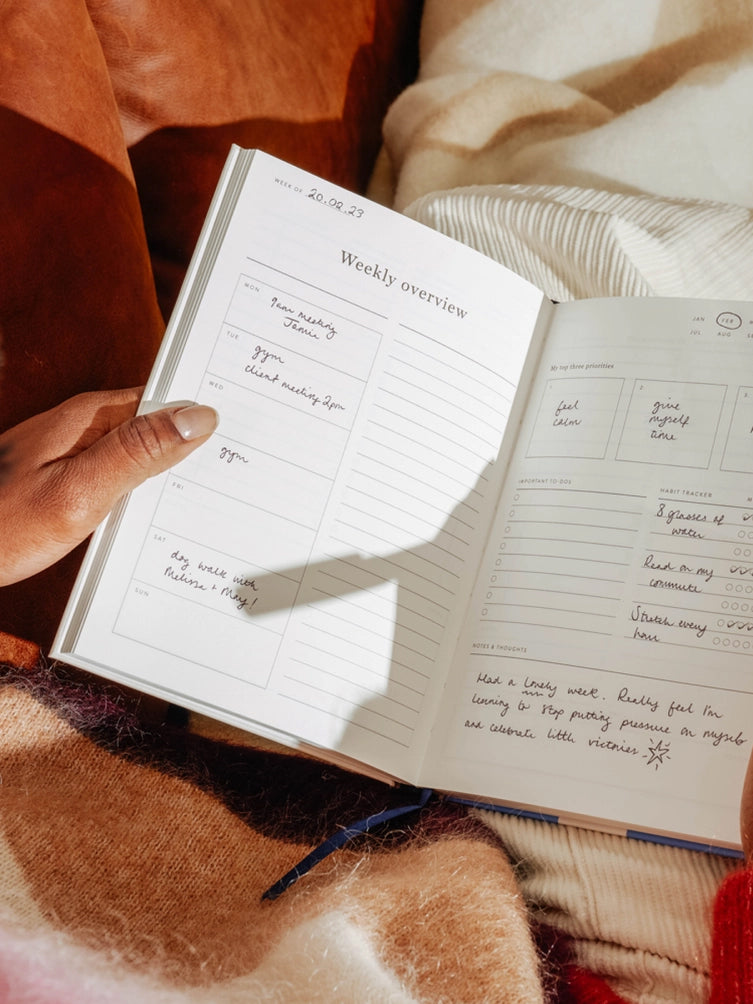 WEEK OF 20.02.23
Weekly overview
MON
9am meeting
Jamie
TUE
gym
client meeting 2pm
WED
gym
FRI
SAT
dog walk with
Melissa + May!
SUN
JAN FEB
JUL AUG
My top three priorities
1.
feel
calm
2.
give
myself
time
3.
IMPORTANT TO-DOS
HABIT TRACKER
8 glasses of
water
Read on my
commute
Stretch every
hour
NOTES & THOUGHTS
Had a lovely week. Really feel I'm
learning to stop putting pressure on myself
and celebrate little victories